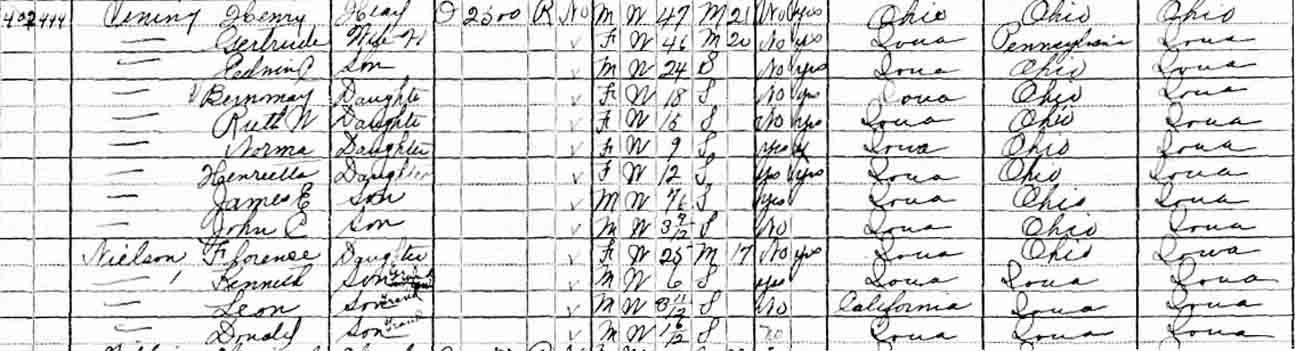 402 444 Vening Henry Head O 2500 R No M W 47 M 21 No yes Ohio Ohio Ohio
— Gertrude Wife H v F W 46 M 20 No yes Iowa Pennsylvania Iowa
— Edwin C Son v M W 24 S No yes Iowa Ohio Iowa
— Bernmay Daughter v F W 18 S No yes Iowa Ohio Iowa
— Ruth W Daughter v F W 15 S No yes Iowa Ohio Iowa
— Norma Daughter v F W 9 S yes Iowa Ohio Iowa
— Henrietta Daughter v F W 12 S yes yes Iowa Ohio Iowa
— James E Son v M W 7 S yes Iowa Ohio Iowa
— John C Son v M W 3 9/12 S No Iowa Ohio Iowa
Nielson Florense Daughter v F W 25 M 17 No yes Iowa Ohio Iowa
— Kennith Son Grand v M W 6 S yes Iowa Iowa Iowa
— Leon Son Grand v M W 3 11/12 S No California Iowa Iowa
— Donald Son Grand v M W 1 6/12 S no Iowa Iowa Iowa